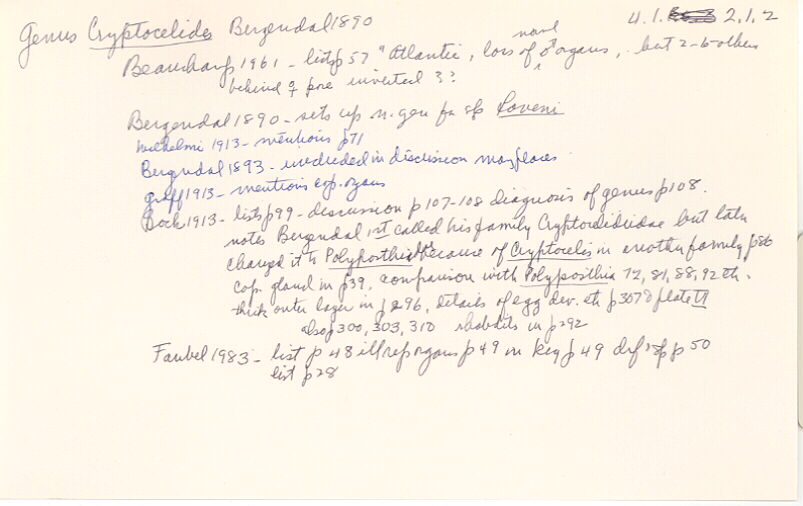 Genus Cryptocelides Bergendal 1890 4.1. 2.1.2
Beauchamp 1961 - lists p 57 "Atlantic, lors of ♂ organs, but 2-6 others
behind ♀ pore inverted 3?
Bergendal 1890 - sets up n. gen for sp Loveni
Wilhelmi 1913 - mentions p71
Bergendal 1893 - included in discussion many places
Graff 1913 - mentions cop. organs
Bock 1913 - lists p99 - discussion p 107-108 diagnosis of genus p108.
notes Bergendal 1st called his family Cryptocelididae but later
changed it to Polyposthiidae because of Cryptocelis in another family p86
cop. gland in p39, comparison with Polyposthia 72, 81, 88, 92 etc.
thick outer layer in p296, details of egg dev. etc p307 & plate VI
also p300, 303, 310 rhabdits in p292
Faubel 1983 - list p 48 ill rep organs p49 in key p49 def & sp p 50
list p28